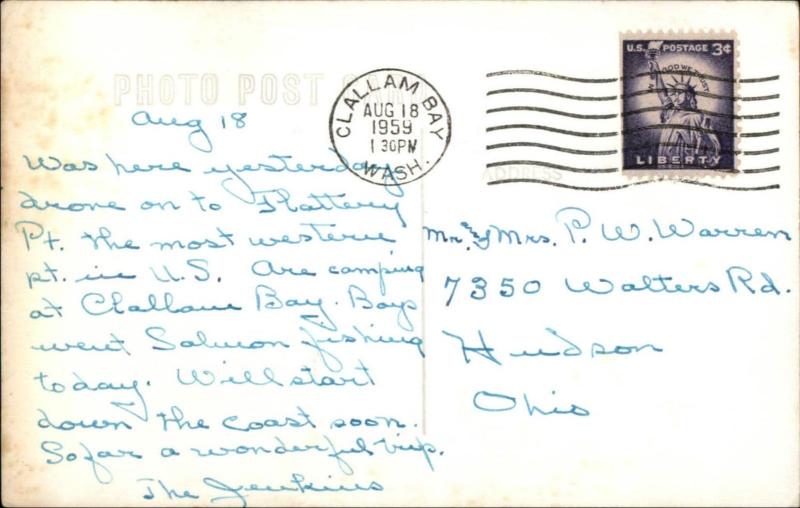 PHOTO POST CARD
CLALLAM BAY
AUG 18
1959
1 30PM
WASH.
U.S. POSTAGE 3¢
IN GOD WE TRUST
LIBERTY
ADDRESS
Aug 18
Was here yesterday
drove on to Flattery
Pt. the most western
pt. in U.S. Are camping
at Clallam Bay. Boys
went Salmon fishing
today. Will start
down the coast soon.
So far a wonderful trip.
The Jenkins
Mr. & Mrs. P. W. Warren
7350 Walters Rd.
Hudson
Ohio